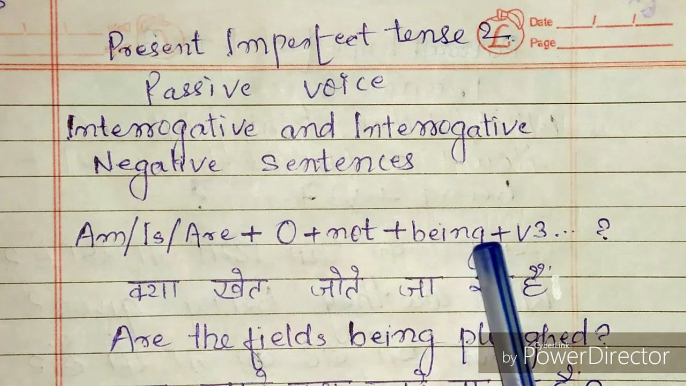 Present Imperfect tense 2
Date
Page
Passive voice
Interrogative and Interrogative
Negative Sentences
Am/Is/Are + O + not + being + V3 ... ?
क्या खेत जोते जा हैं
Are the fields being ploughed?
CyberLink
by PowerDirector